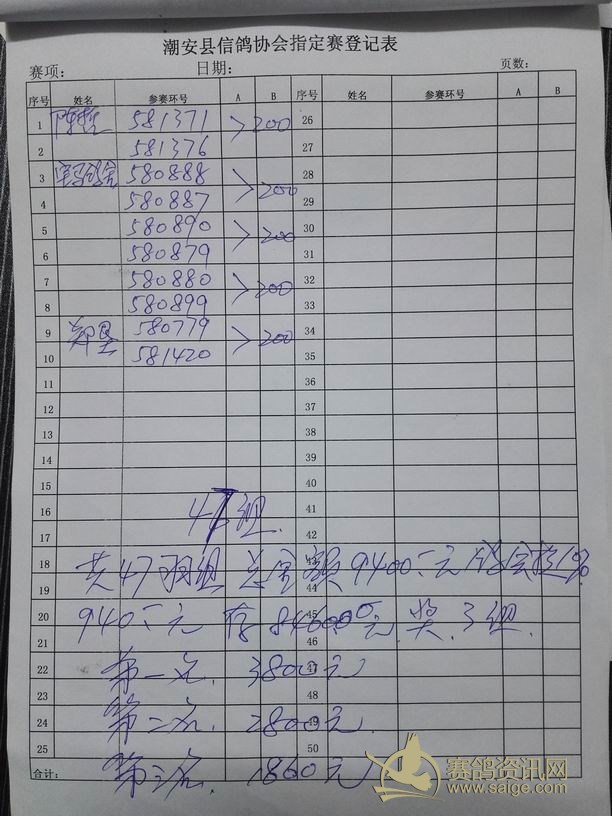 潮安县信鸽协会指定赛登记表
赛项： 日期： 页数：
序号 姓名 参赛环号 A B 序号 姓名 参赛环号 A B
1 581371 >200 26
2 581376 27
3 580888 >200 28
4 580887 29
5 580890 >200 30
6 580879 31
7 580880 >200 32
8 580899 33
9 580779 >200 34
10 581420 35
11 36
12 37
13 38
14 39
15 40
16 41
17 47组. 42
18 43
共47羽组 总金额9400元
19 44
20 45
940元 存 8460元 奖3组.
21 46
22 第一名. 3800元 47
23 48
24 第二名. 2800元 49
25 50
合计： 第三名. 1860元
赛鸽资讯网
www.saige.com